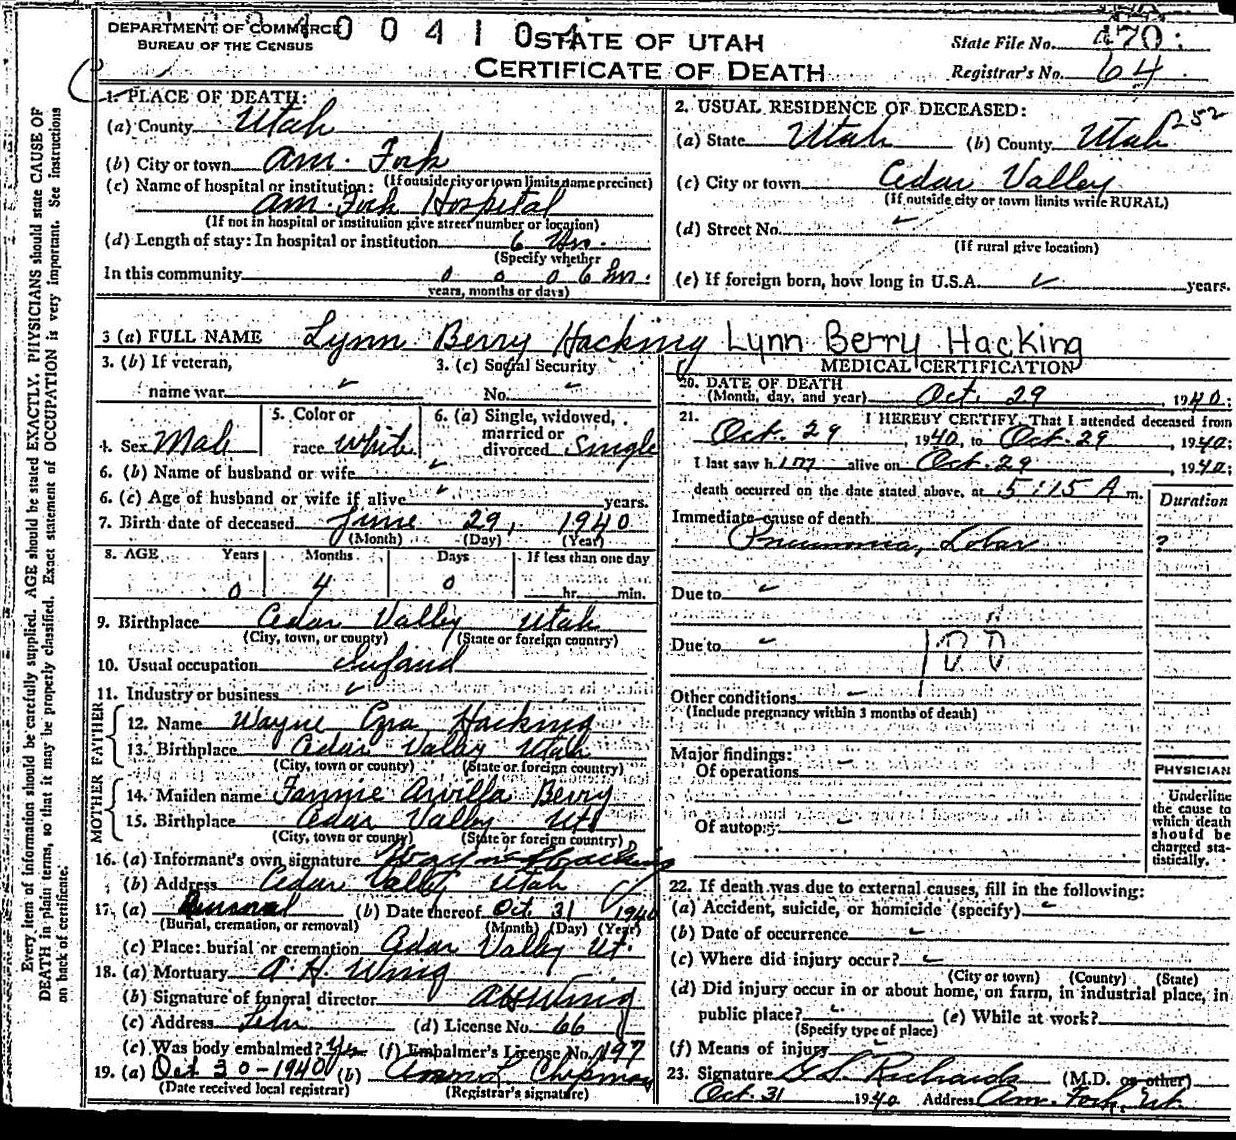 DEPARTMENT OF COMMERCE
BUREAU OF THE CENSUS
0 0 4 1 0 4
STATE OF UTAH
CERTIFICATE OF DEATH
State File No. 270
Registrar's No. 64
Every item of information should be carefully supplied. AGE should be stated EXACTLY. PHYSICIANS should state CAUSE OF
DEATH in plain terms, so that it may be properly classified. Exact statement of OCCUPATION is very important. See instructions
on back of certificate.
1. PLACE OF DEATH:
(a) County Utah
(b) City or town Am. Fork
(If outside city or town limits name precinct)
(c) Name of hospital or institution:
Am. Fork Hospital
(If not in hospital or institution give street number or location)
(d) Length of stay: In hospital or institution 6 Hr.
(Specify whether
In this community 0 0 0 6 hr.
years, months or days)
2. USUAL RESIDENCE OF DECEASED:
252
(a) State Utah (b) County Utah
(c) City or town Cedar Valley
(If outside city or town limits write RURAL)
(d) Street No. ✓
(If rural give location)
(e) If foreign born, how long in U.S.A. ✓ years.
3 (a) FULL NAME Lynn Berry Hacking Lynn Berry Hacking
3. (b) If veteran,
name war ✓
3. (c) Social Security
No. ✓
4. Sex Male
5. Color or
race white
6. (a) Single, widowed,
married or
divorced Single
6. (b) Name of husband or wife ✓
6. (c) Age of husband or wife if alive ✓ years.
7. Birth date of deceased June 29, 1940
(Month) (Day) (Year)
8. AGE Years Months Days If less than one day
0 4 0 hr. min.
9. Birthplace Cedar Valley Utah
(City, town, or county) (State or foreign country)
10. Usual occupation Infant
11. Industry or business ✓
FATHER
12. Name Wayne Ezra Hacking
13. Birthplace Cedar Valley Utah
(City, town or county) (State or foreign country)
MOTHER
14. Maiden name Fannie Arvilla Berry
15. Birthplace Cedar Valley Ut
(City, town or county) (State or foreign country)
16. (a) Informant's own signature Wayne Hacking
(b) Address Cedar Valley Utah
17. (a) Burial (b) Date thereof Oct 31 1940
(Burial, cremation, or removal) (Month) (Day) (Year)
(c) Place: burial or cremation Cedar Valley Ut.
18. (a) Mortuary A. H. Wing
(b) Signature of funeral director AH Wing
(c) Address Lehi (d) License No. 66
(e) Was body embalmed? Yes (f) Embalmer's License No. 197
19. (a) Oct 30-1940 (b) Chipman
(Date received local registrar) (Registrar's signature)
MEDICAL CERTIFICATION
20. DATE OF DEATH
(Month, day, and year) Oct. 29, 1940:
21. I HEREBY CERTIFY, That I attended deceased from
Oct. 29, 1940, to Oct. 29, 1940;
I last saw him alive on Oct. 29, 1940;
death occurred on the date stated above, at 5:15 A m.
Duration
Immediate cause of death
Pneumonia, Lobar ?
Due to ✓
Due to ✓
Other conditions
(Include pregnancy within 3 months of death)
Major findings:
Of operations
Of autopsy
PHYSICIAN
Underline
the cause to
which death
should be
charged sta-
tistically.
22. If death was due to external causes, fill in the following:
(a) Accident, suicide, or homicide (specify)
(b) Date of occurrence
(c) Where did injury occur?
(City or town) (County) (State)
(d) Did injury occur in or about home, on farm, in industrial place, in
public place? (e) While at work?
(Specify type of place)
(f) Means of injury
23. Signature G. S. Richards (M.D. or other)
Oct. 31 1940 Address Am. Fork, Ut.